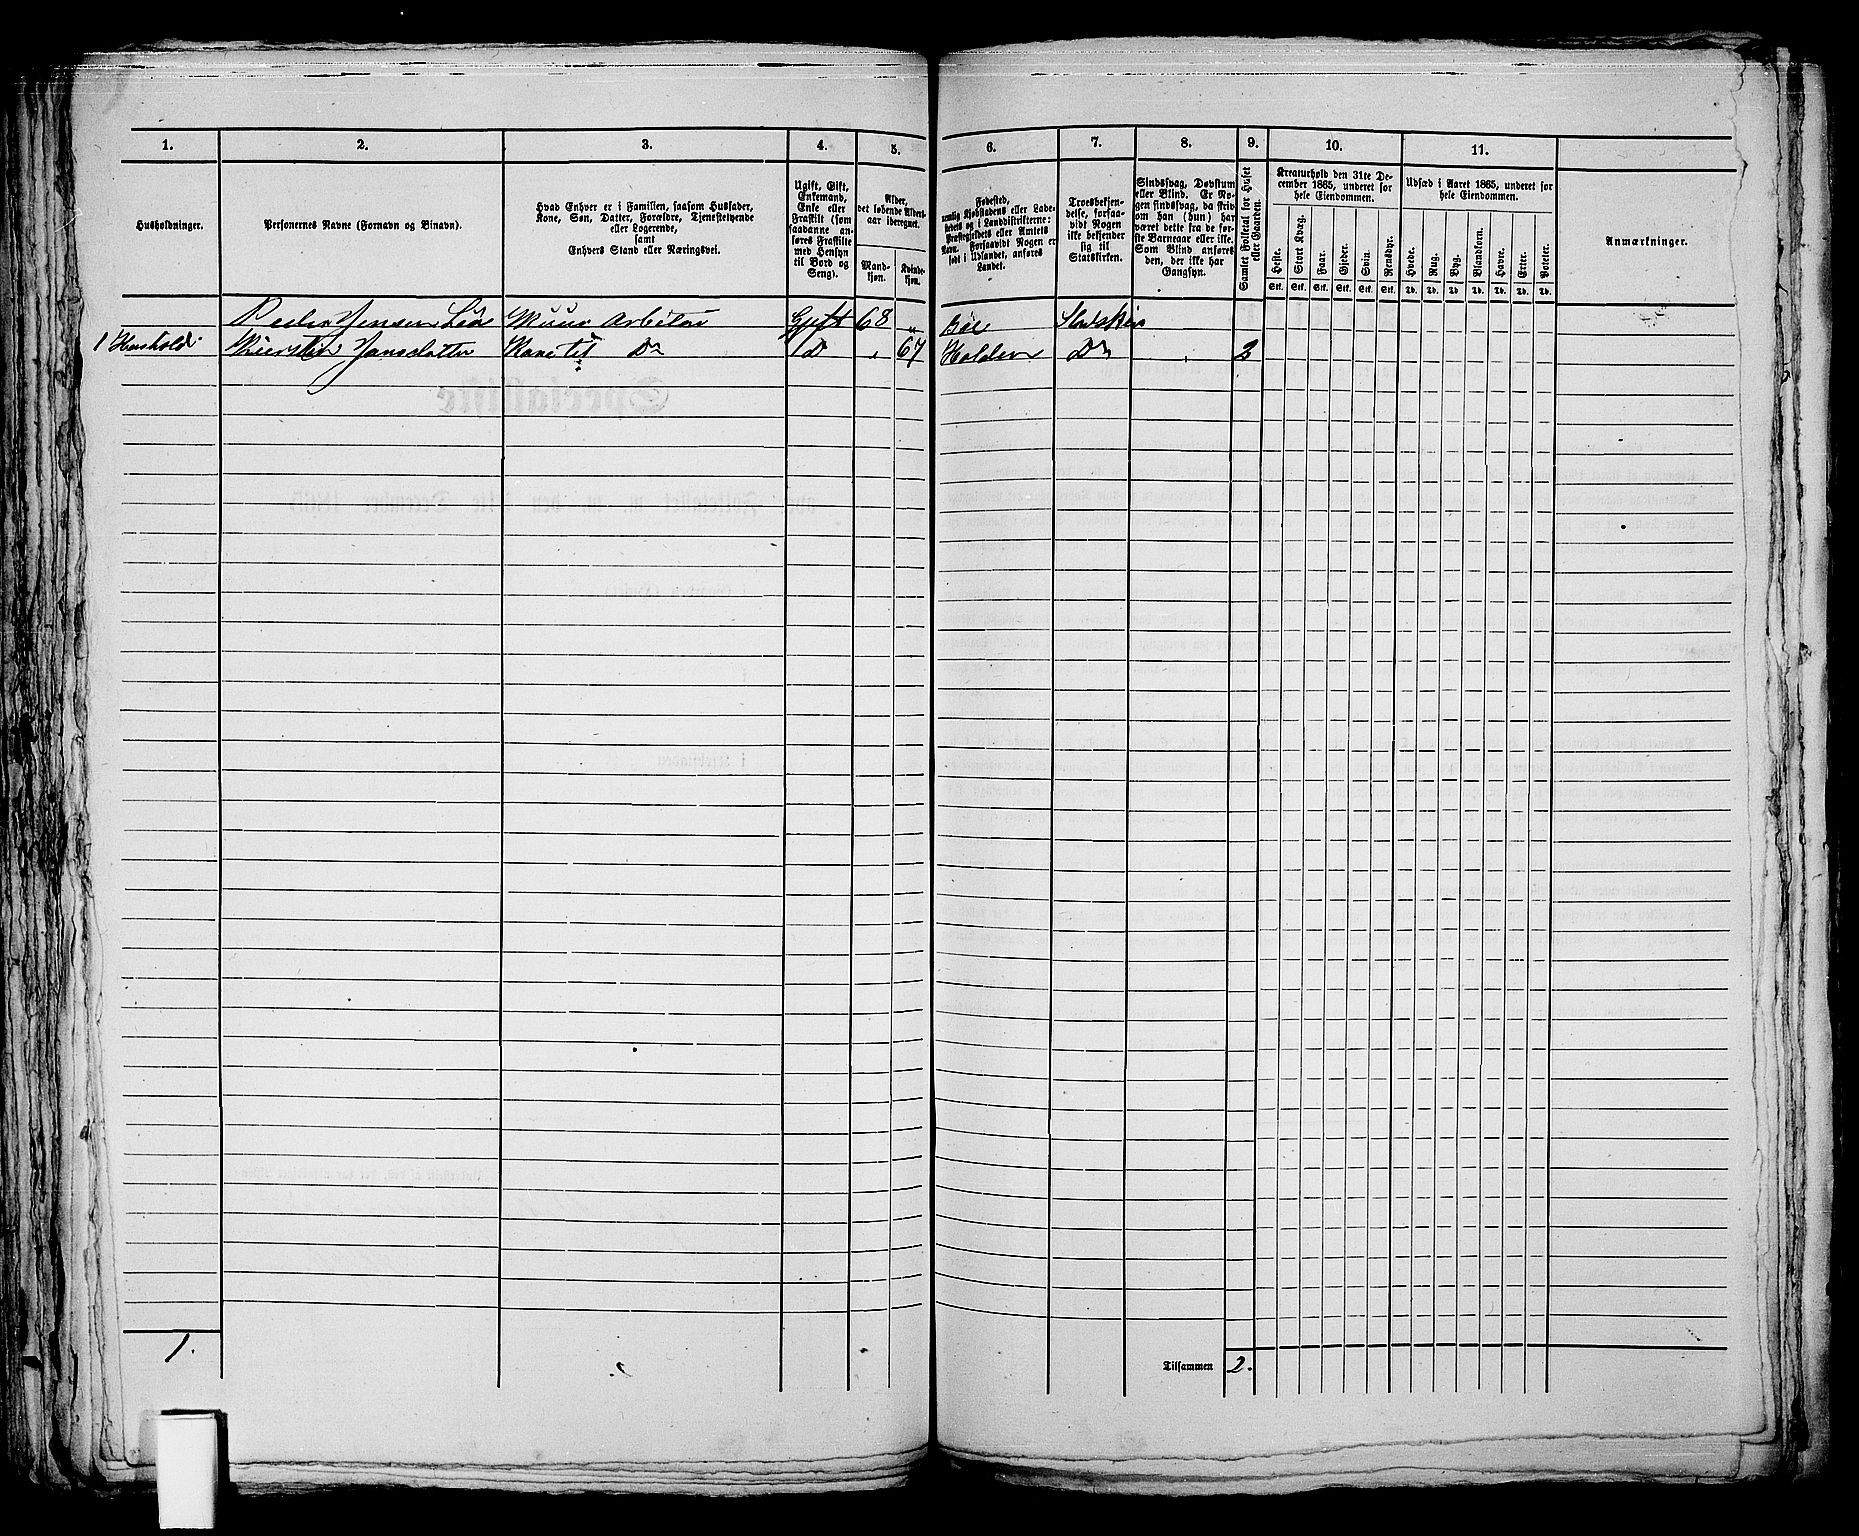 1. 2. 3. 4. 5. 6. 7. 8. 9. 10. 11.
Husholdninger.
Personernes Navne (Fornavn og Binavn).
Hvad Enhver er i Familien, saasom Husfader,
Kone, Søn, Datter, Forældre, Tjenestetyende
eller Logerende,
samt
Enhvers Stand eller Næringsvei.
Ugift, Gift,
Enkemand,
Enke eller
Fraskilt (som
saadanne an-
føres Fraskilte
med Hensyn
til Bord og
Seng).
Alder,
det løbende Alders-
aar iberegnet.
Mand-
kjøn.
Kvinde-
kjøn.
Fødested,
nemlig Kjøbstadens eller Lade-
stedets og i Landdistrikterne:
Præstegjeldets eller Amtets
Navn. Forsaavidt Nogen er
født i Udlandet, anføres
Landet.
Troesbekjen-
delse, forsaa-
vidt Nogen
ikke bekjender
sig til
Statskirken.
Sindssvag, Døvstum
eller Blind. Er No-
gen sindssvag, da skriv
om han (hun) har
været dette fra de før-
ste Barneaar eller ikke.
Som Blind anføres
den, der ikke har
Gangsyn.
Samlet Folketal for Huset
eller Gaarden.
Kreaturhold den 31te De-
cember 1865, underet for
hele Eiendommen.
Heste. Stort Kvæg. Faar. Gjeder. Svin. Rensdyr.
Stk. Stk. Stk. Stk. Stk. Stk.
Udsæd i Aaret 1865, underet for
hele Eiendommen.
Hvede. Rug. Byg. Blandkorn. Havre. Erter. Poteter.
Td. Td. Td. Td. Td. Td. Td.
Anmærkninger.
Peder Jensen Muur Arbeider Gift 68 " Statskirk
1 Hushold Kierstin Jansdatter Kone til Do D " 67 Holden Do " 2
1. Tilsammen 2.